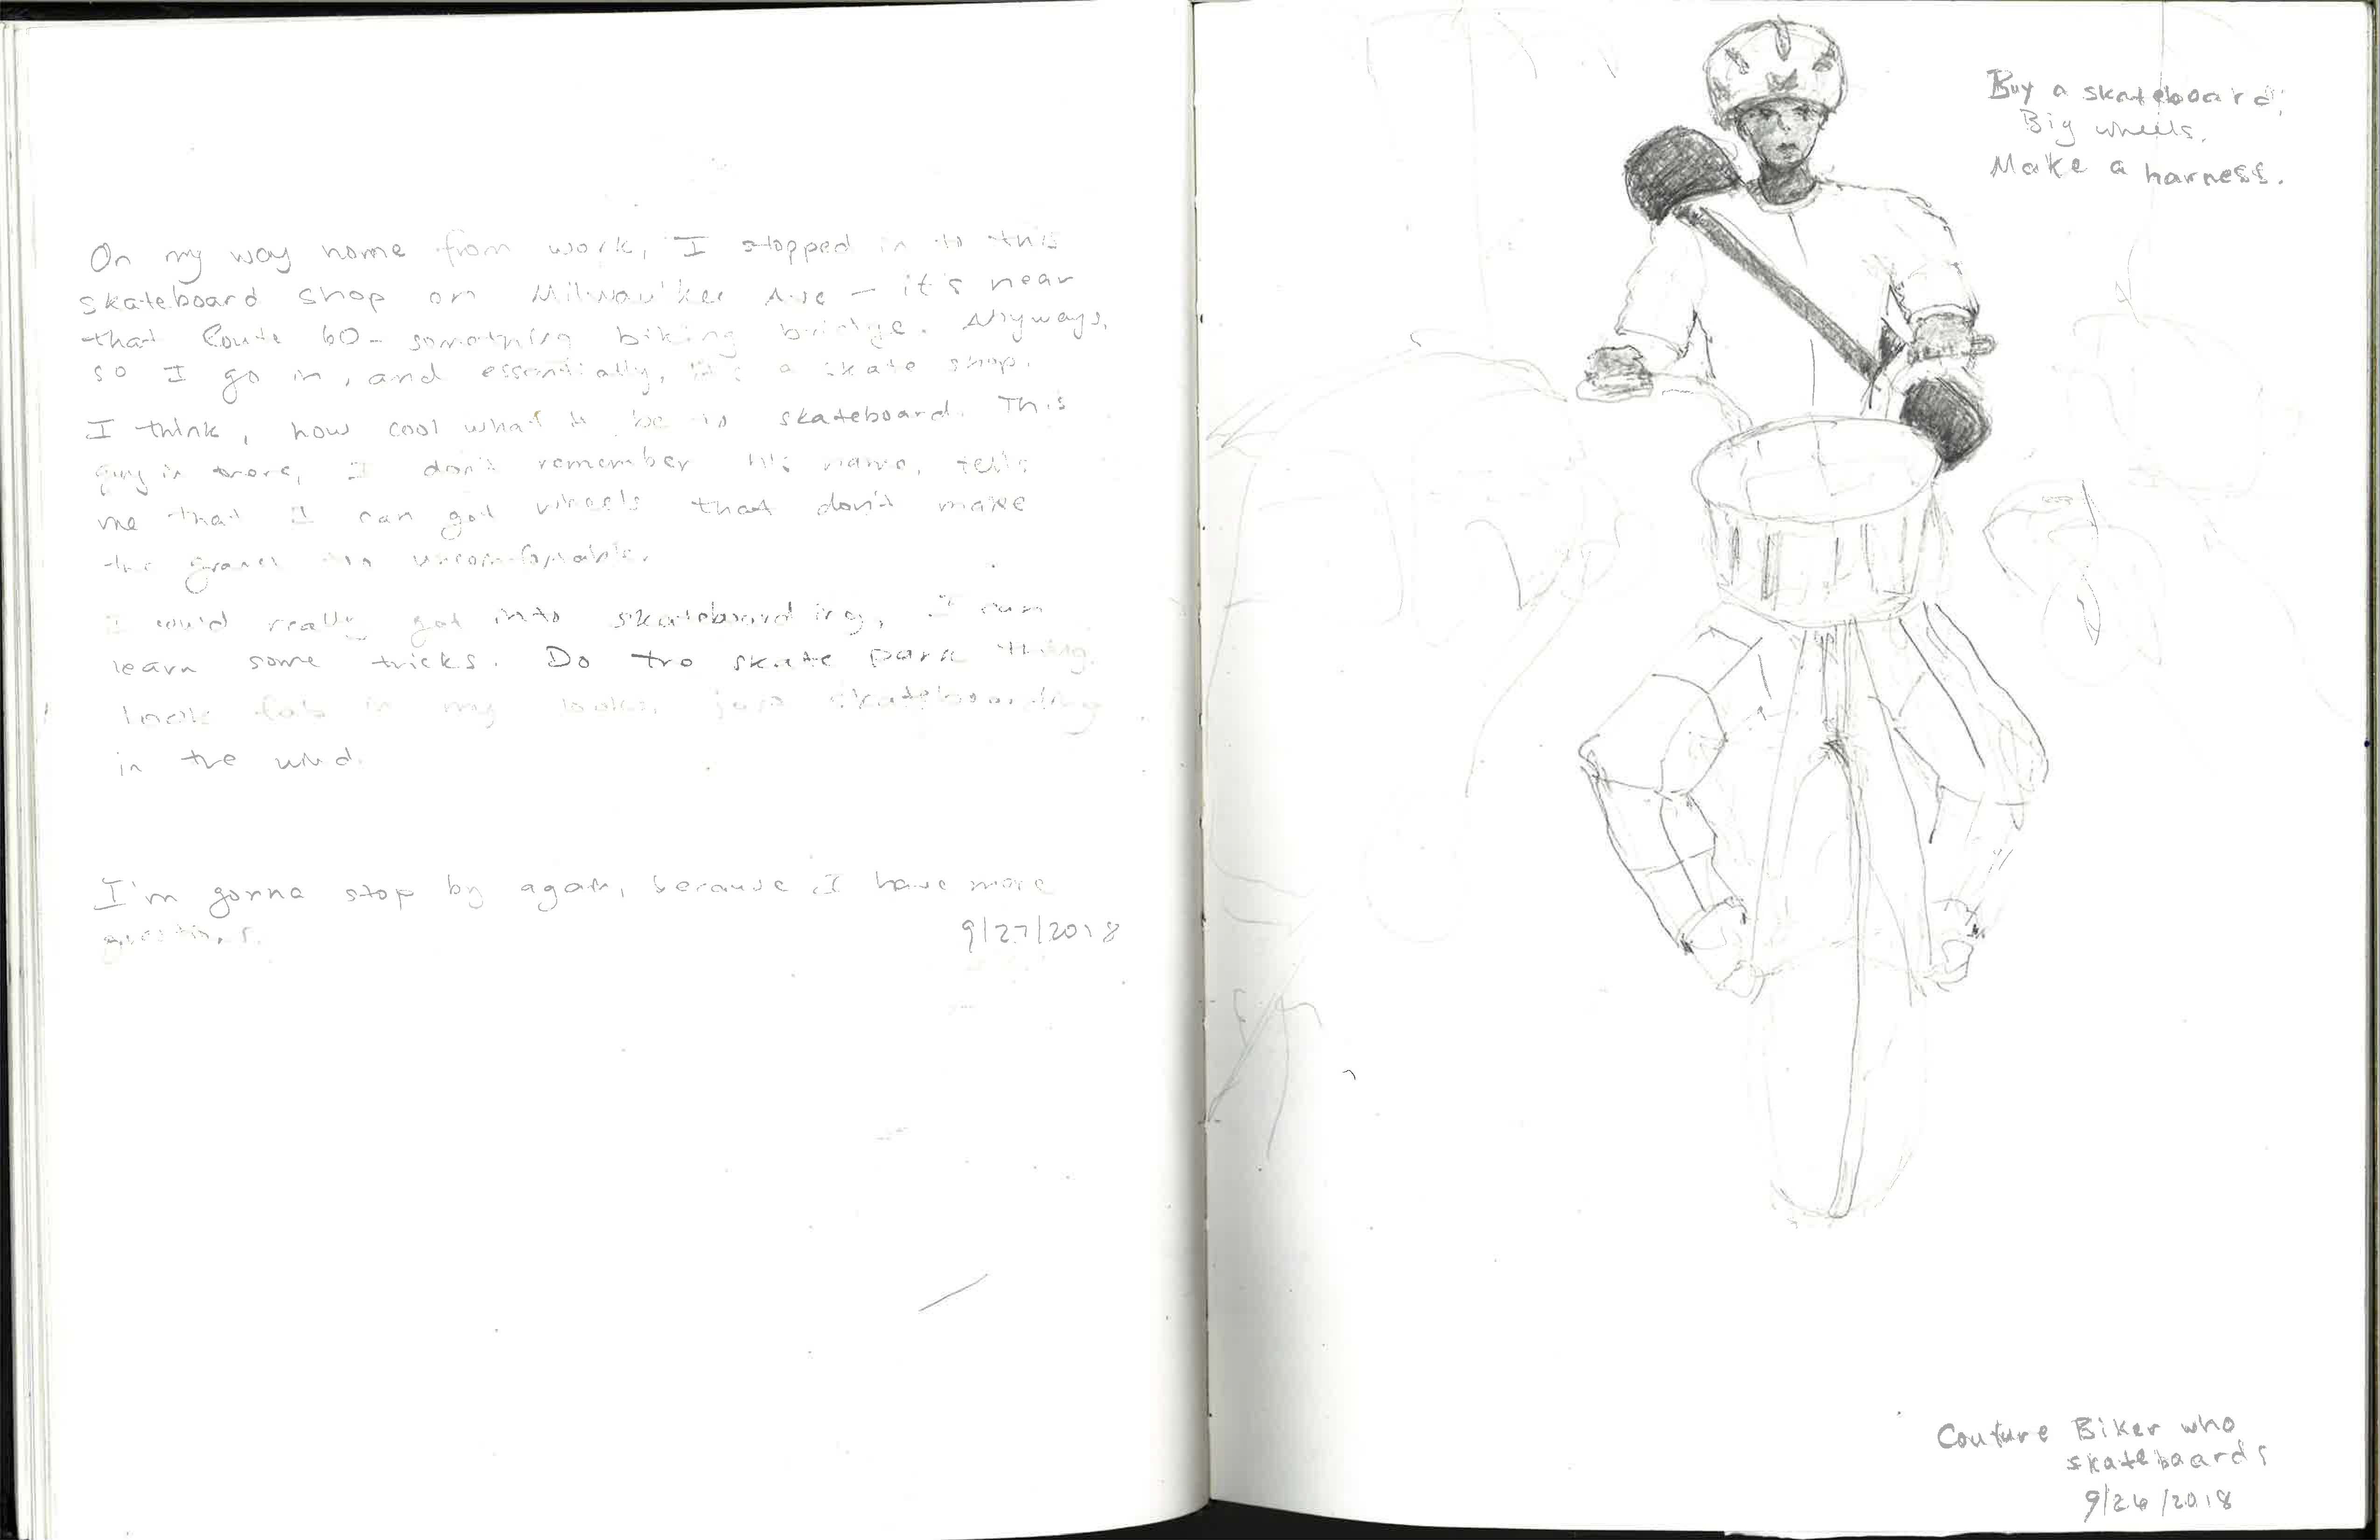 On my way home from work, I stopped in to this
skateboard shop on Milwaukee Ave – it's near
that Route 60-something biking bridge. Anyways,
so I go in, and essentially, it's a skate shop.
I think, how cool what it be to skateboard. This
guy in there, I don't remember his name, tells
me that I can get wheels that don't make
the gravel uncomfortable.
I could really get into skateboarding, I can
learn some tricks. Do the skate park thing.
look fab in my looks, just skateboarding
in the wind.
I'm gonna stop by again, because I have more
questions.
9/27/2018
Buy a skateboard,
Big wheels.
Make a harness.
Couture Biker who
skateboards
9/26/2018